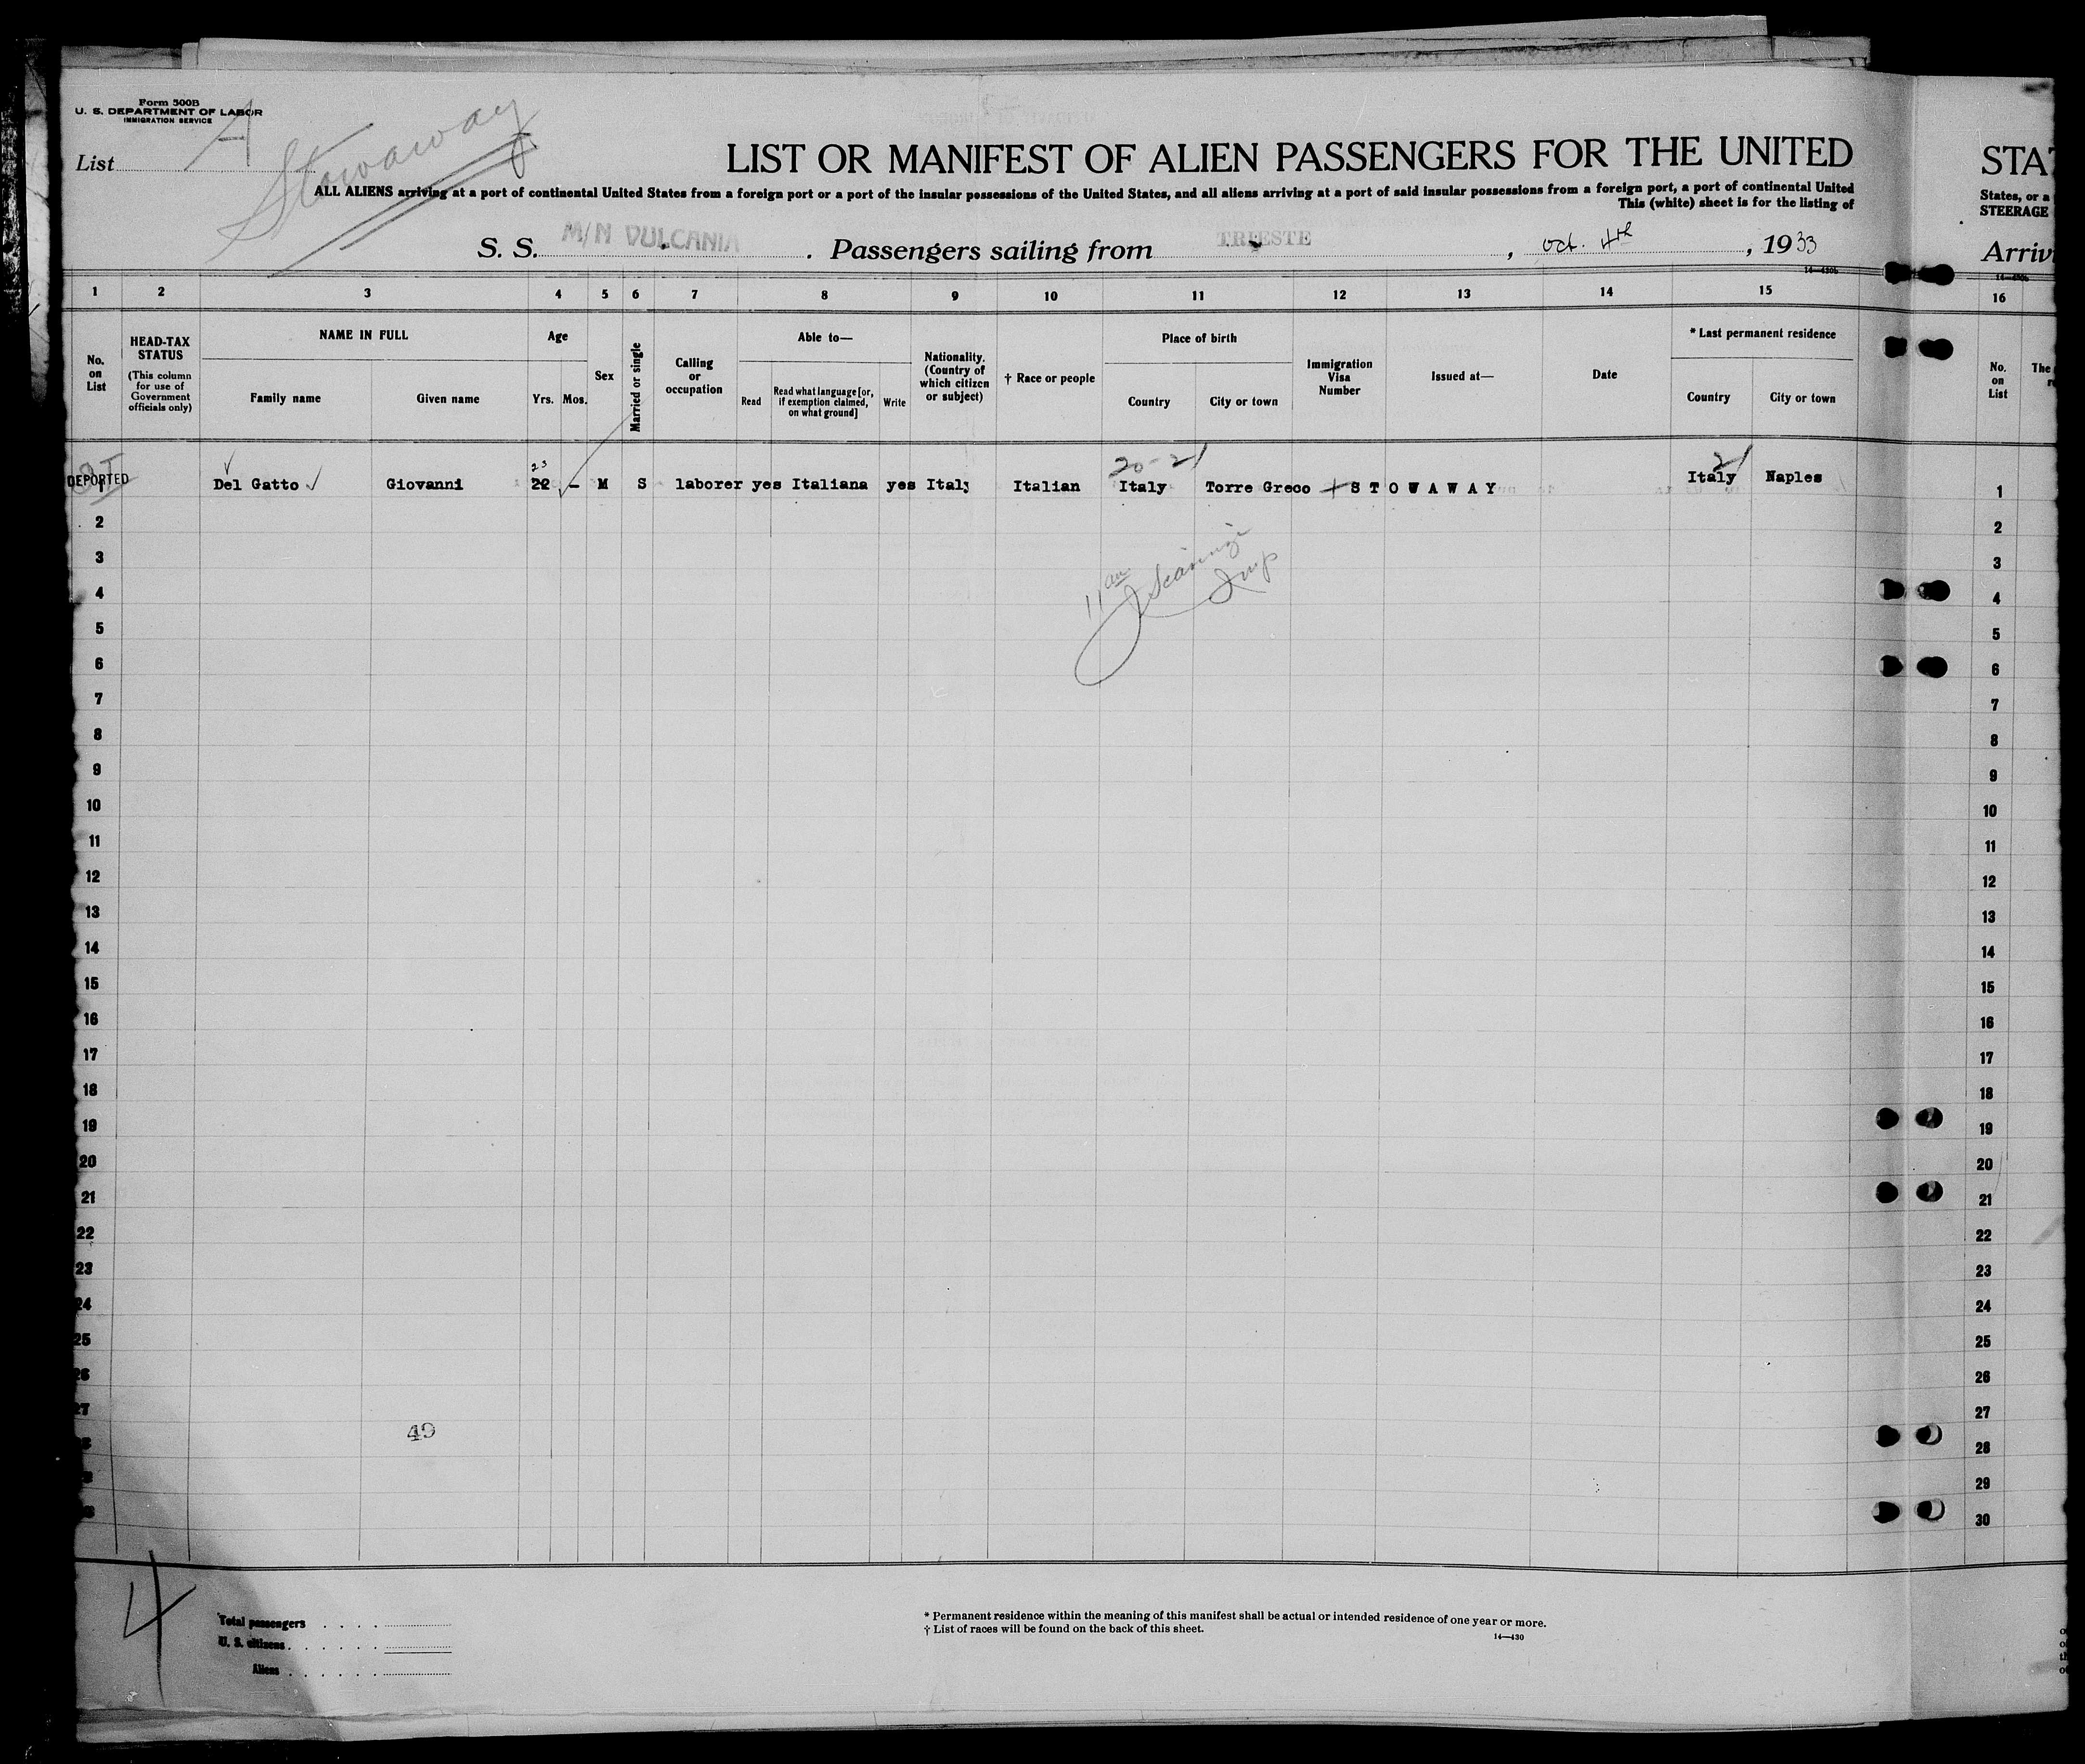 Form 500B
U. S. DEPARTMENT OF LABOR
IMMIGRATION SERVICE
List A
Stowaway
LIST OR MANIFEST OF ALIEN PASSENGERS FOR THE UNITED
ALL ALIENS arriving at a port of continental United States from a foreign port or a port of the insular possessions of the United States, and all aliens arriving at a port of said insular possessions from a foreign port, a port of continental United
This (white) sheet is for the listing of
S. S. M/N VULCANIA. Passengers sailing from TRIESTE, Oct. 4th, 1933
14—430b
1 2 3 4 5 6 7 8 9 10 11 12 13 14 15
No. on List
HEAD-TAX STATUS
(This column for use of Government officials only)
NAME IN FULL
Family name Given name
Age
Yrs. Mos.
Sex
Married or single
Calling or occupation
Able to—
Read
Read what language [or, if exemption claimed, on what ground]
Write
Nationality. (Country of which citizen or subject)
† Race or people
Place of birth
Country City or town
Immigration Visa Number
Issued at—
Date
* Last permanent residence
Country City or town
23 20-21 21
DEPORTED 1 Del Gatto Giovanni 22 - M S laborer yes Italiana yes Italy Italian Italy Torre Greco STOWAWAY Italy Naples
2
3
4
5
6
7
8
9
10
11
12
13
14
15
16
17
18
19
20
21
22
23
24
25
26
27
11 am
Insp
49
4
Total passengers
U. S. citizens
Aliens
* Permanent residence within the meaning of this manifest shall be actual or intended residence of one year or more.
† List of races will be found on the back of this sheet.
14—430
STA
States, or a
STEERAGE
Arriv
16
No. on List
The
1
2
3
4
5
6
7
8
9
10
11
12
13
14
15
16
17
18
19
20
21
22
23
24
25
26
27
28
29
30